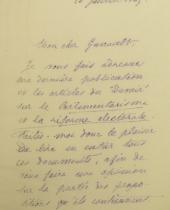 Mon cher Guesault,
Je vous fais adresser
ma dernière publication
et les articles du "Devoir"
sur le Parlementarisme
et la réforme électorale
Faites-moi donc le plaisir
de lire en entier tous
ces documents, afin de
vous faire une opinion
sur la portée des propo-
sitions qu'ils contiennent